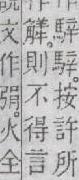 騂騂。按許所
作觲。則不得言
文作弲。火全